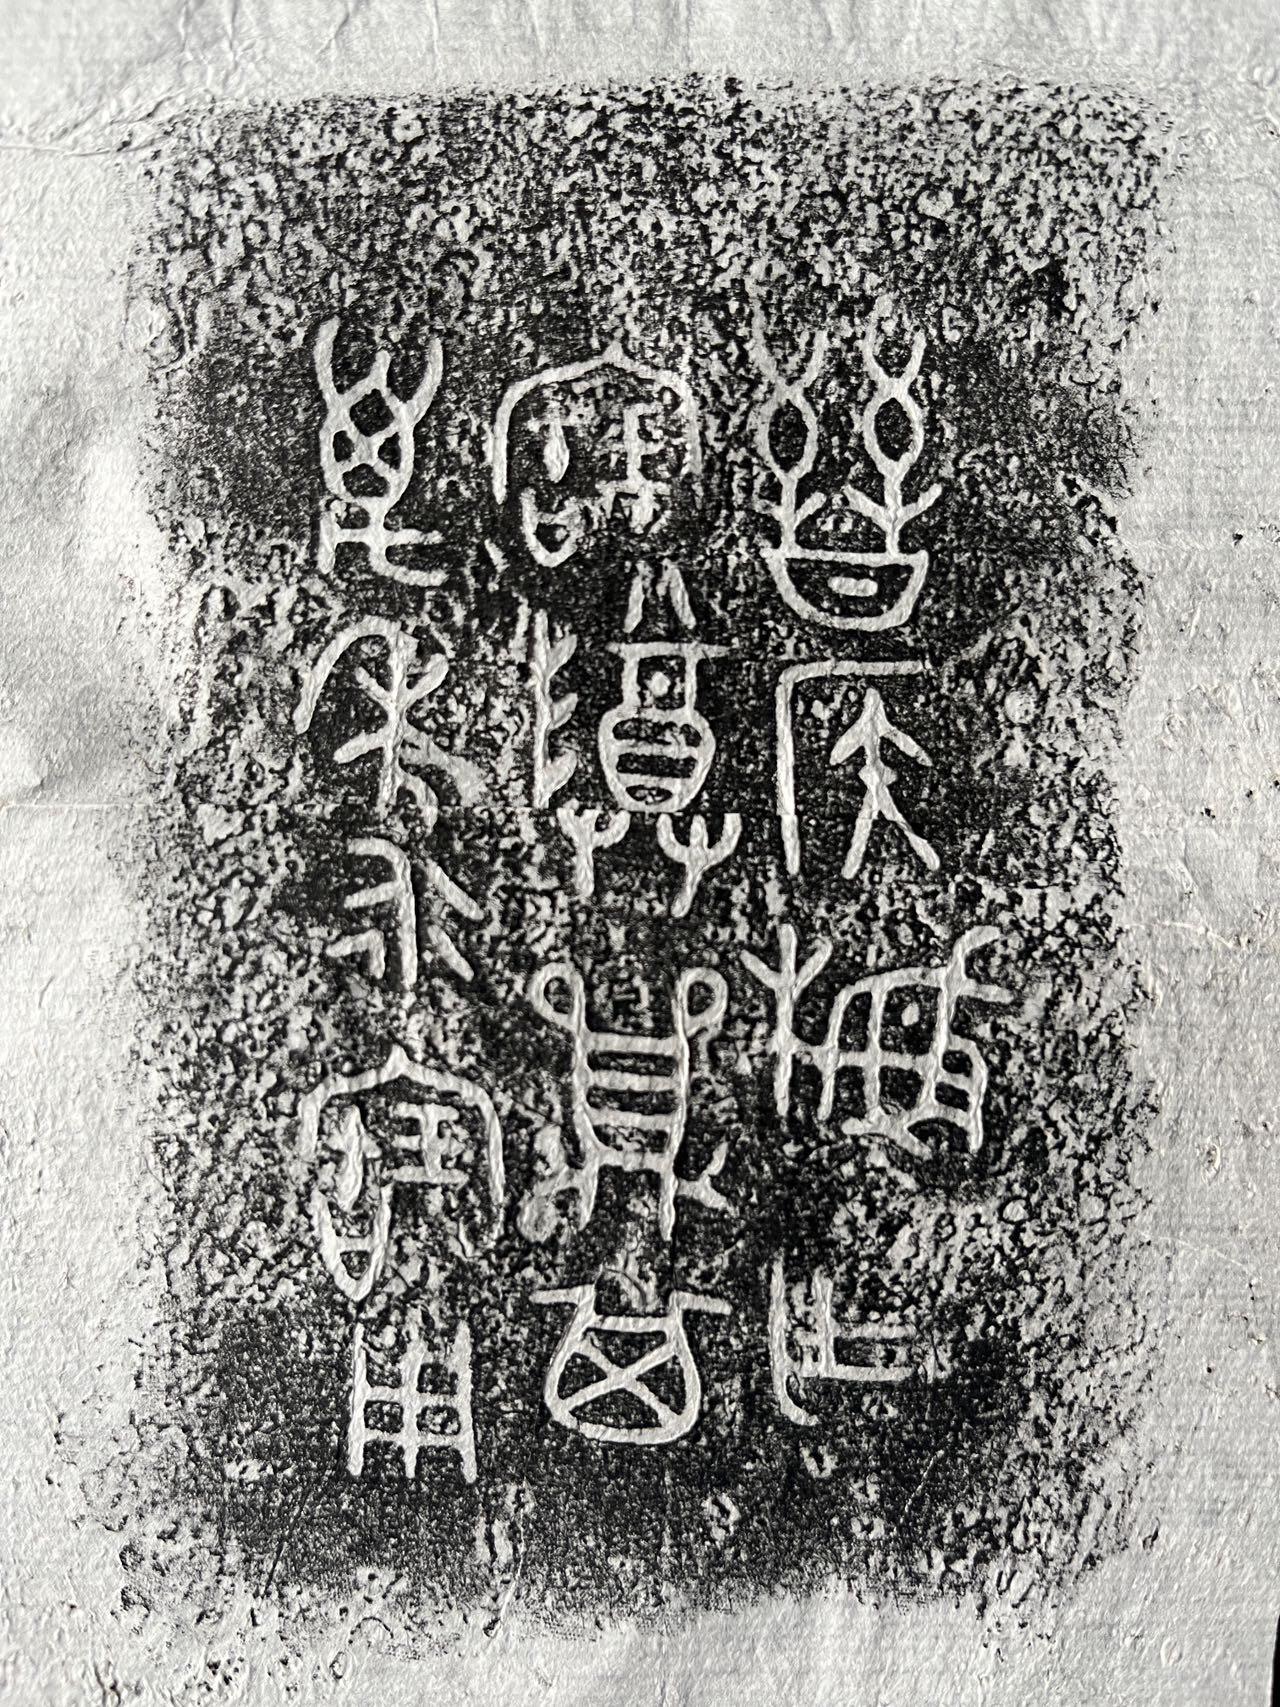 晉侯穌乍
寶尊鼎其
萬年永寶用